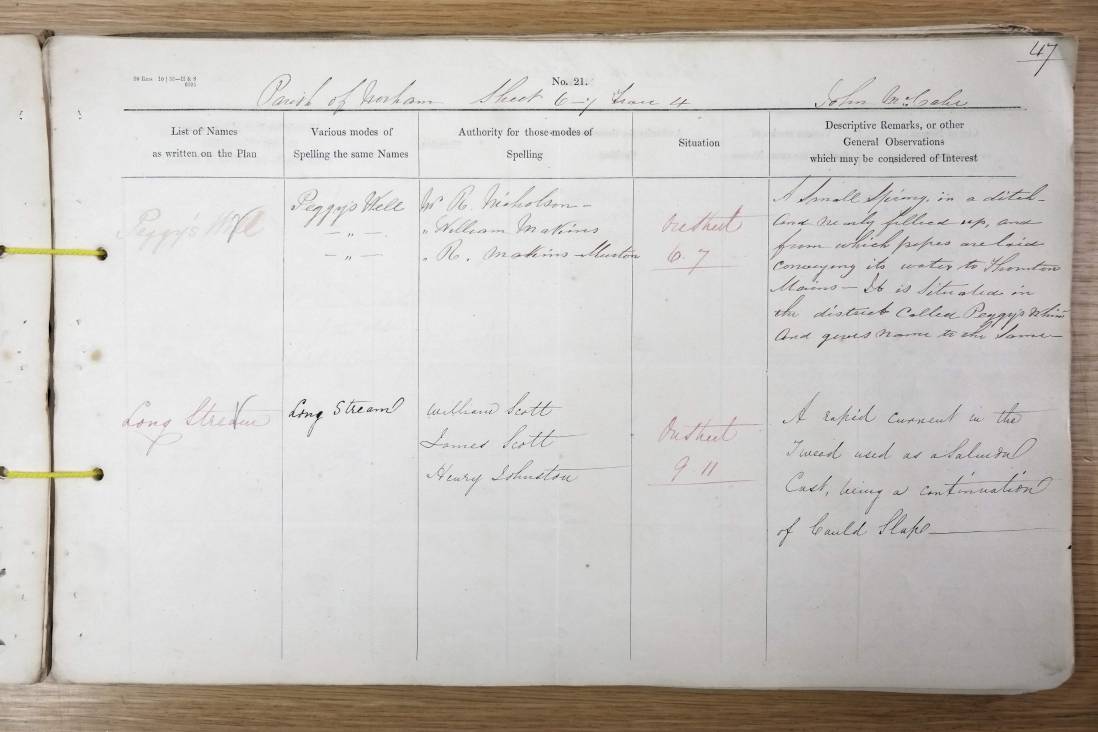 47
No. 21.
Parish of Norham Sheet 6-7 Trace 4 John McCabe
List of Names
as written on the Plan
Various modes of
Spelling the same Names
Authority for those modes of
Spelling
Situation
Descriptive Remarks, or other
General Observations
which may be considered of Interest
Peggy's Well
Peggy's Well
— „ —
— „ —
Mr R. Nicholson -
„ William Makins
„ R. Makins - Murton
On Sheet
6. 7
A Small Spring, in a ditch -
and nearly filled up, and
from which pipes are laid
conveying its water to Thornton
Mains - It is Situated in
the district Called Peggy's Whin
and gives name to the Same -
Long Stream
Long Stream
William Scott
James Scott
Henry Johnston
On Sheet
9. 11
A rapid current in the
Tweed used as a Salmon
Cast, being a continuation
of Cauld Slap —